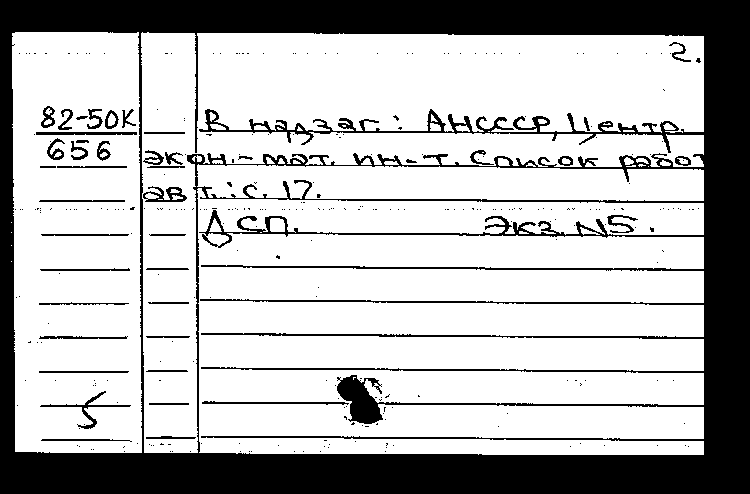 2.
82-50К В надзаг.: АНСССР, Центр.
656 экон.-мат. ин-т. Список работ
авт.: с. 17.
ДСП. Экз. N5.
5